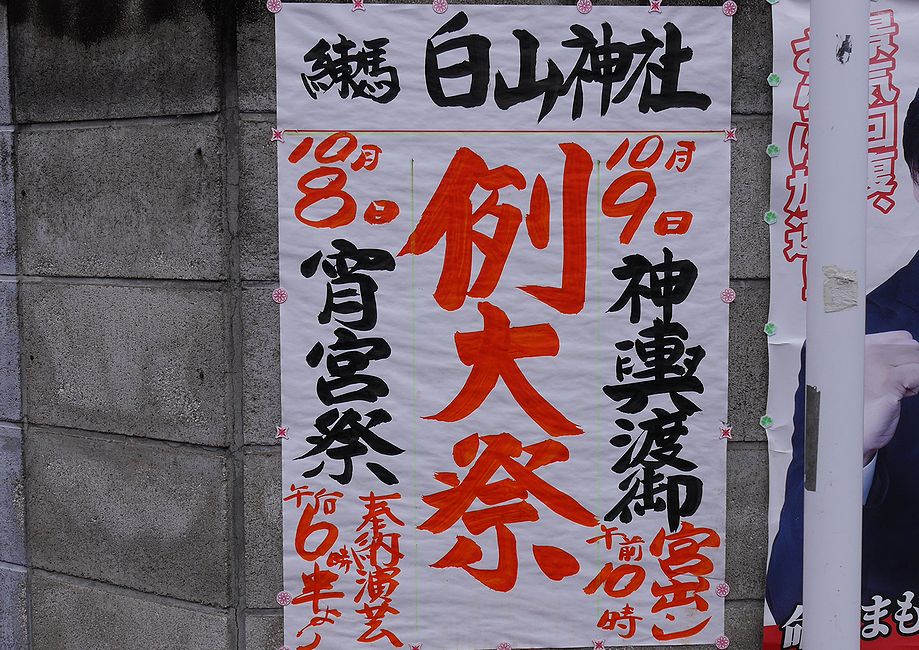 練馬 白山神社
例大祭
10月9日
神輿渡御
宮出し
午前10時
10月8日
宵宮祭
奉納演芸
午后6時半より
景気回復、
まも